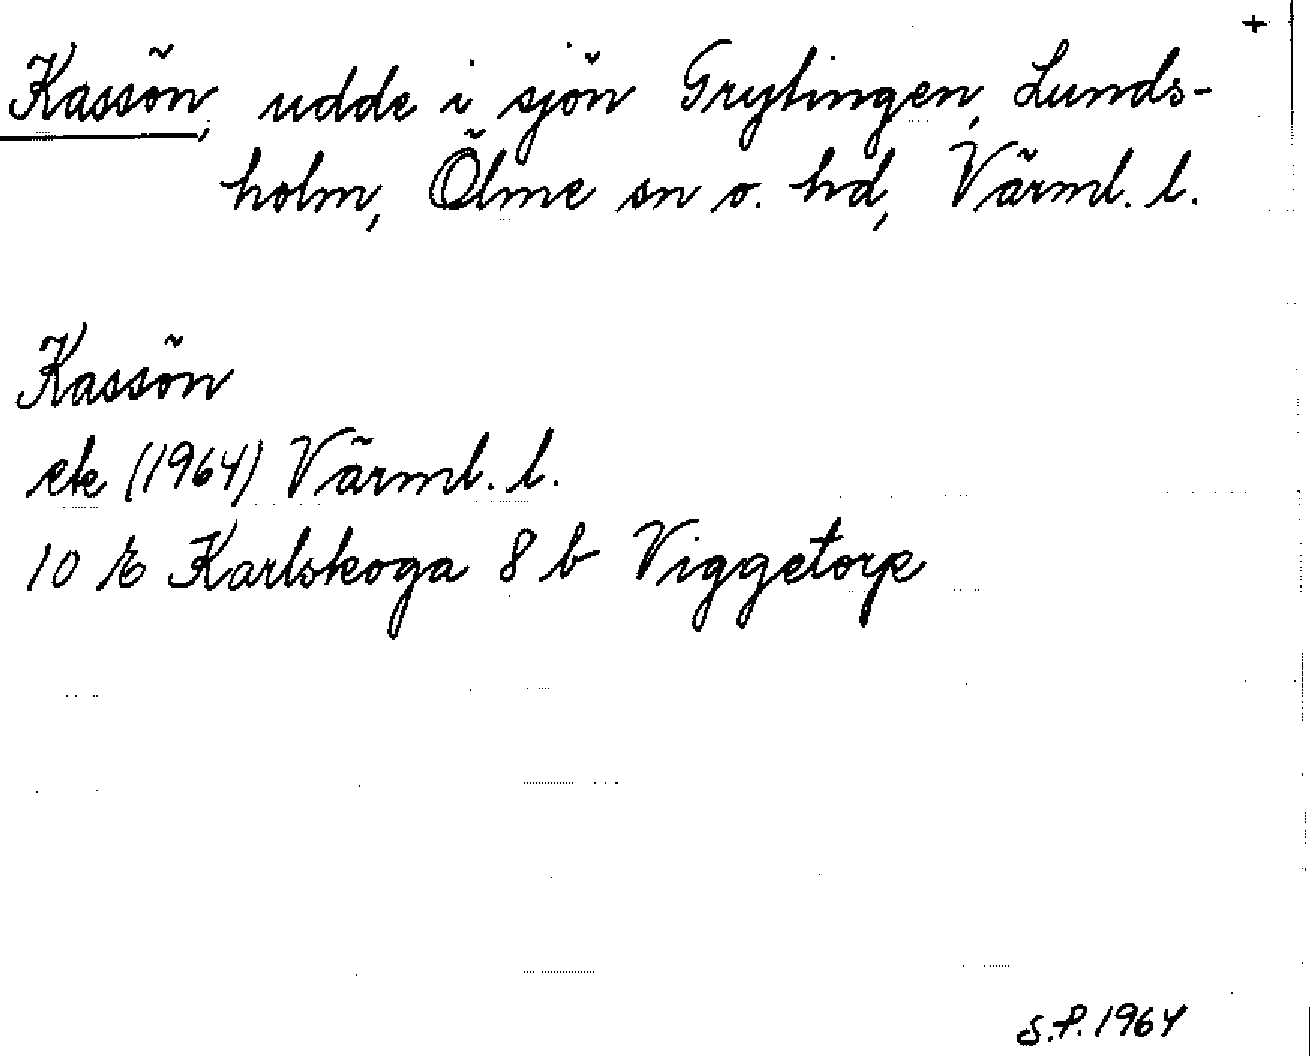 +
Kassön, udde i sjön Grytingen, Lunds-
holm, Ölme sn o. hd, Värml. l.
Kassön
ek (1964) Värml. l.
10 E Karlskoga 8 b Viggetorp
S.P. 1964